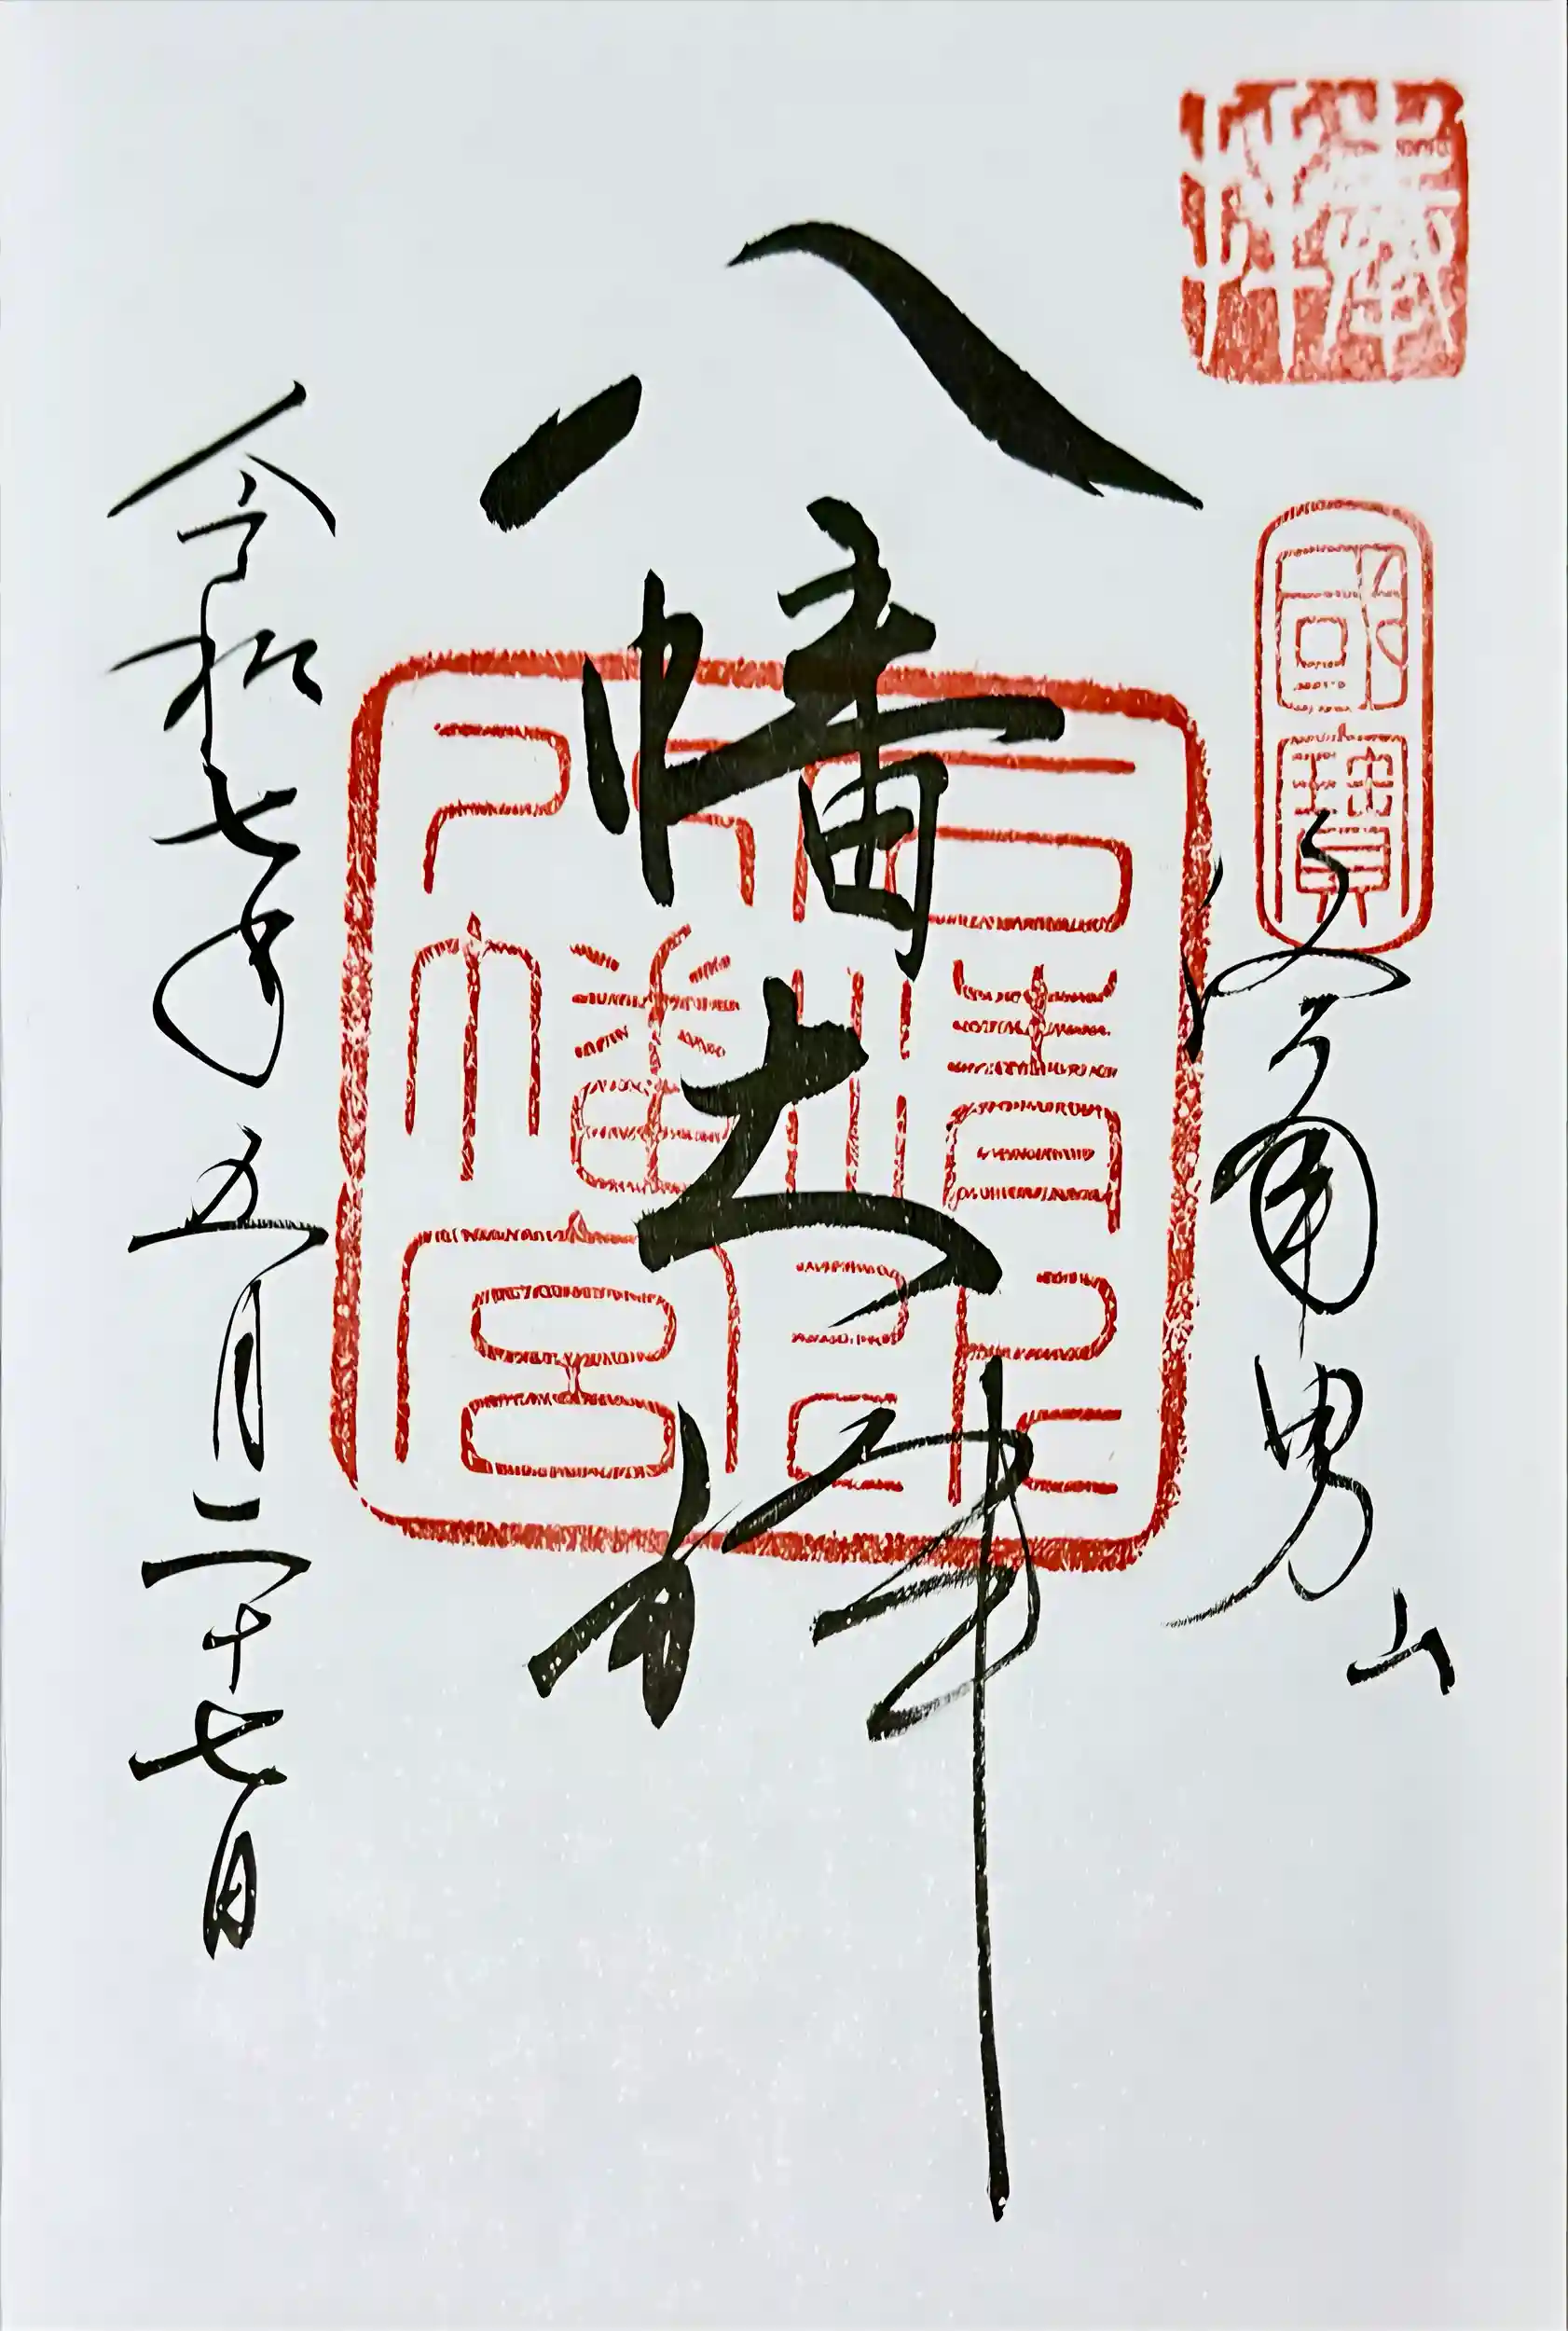 奉拜
國寶
洛南男山
八幡大神
石清水
八幡宮
令和七年五月二十七日